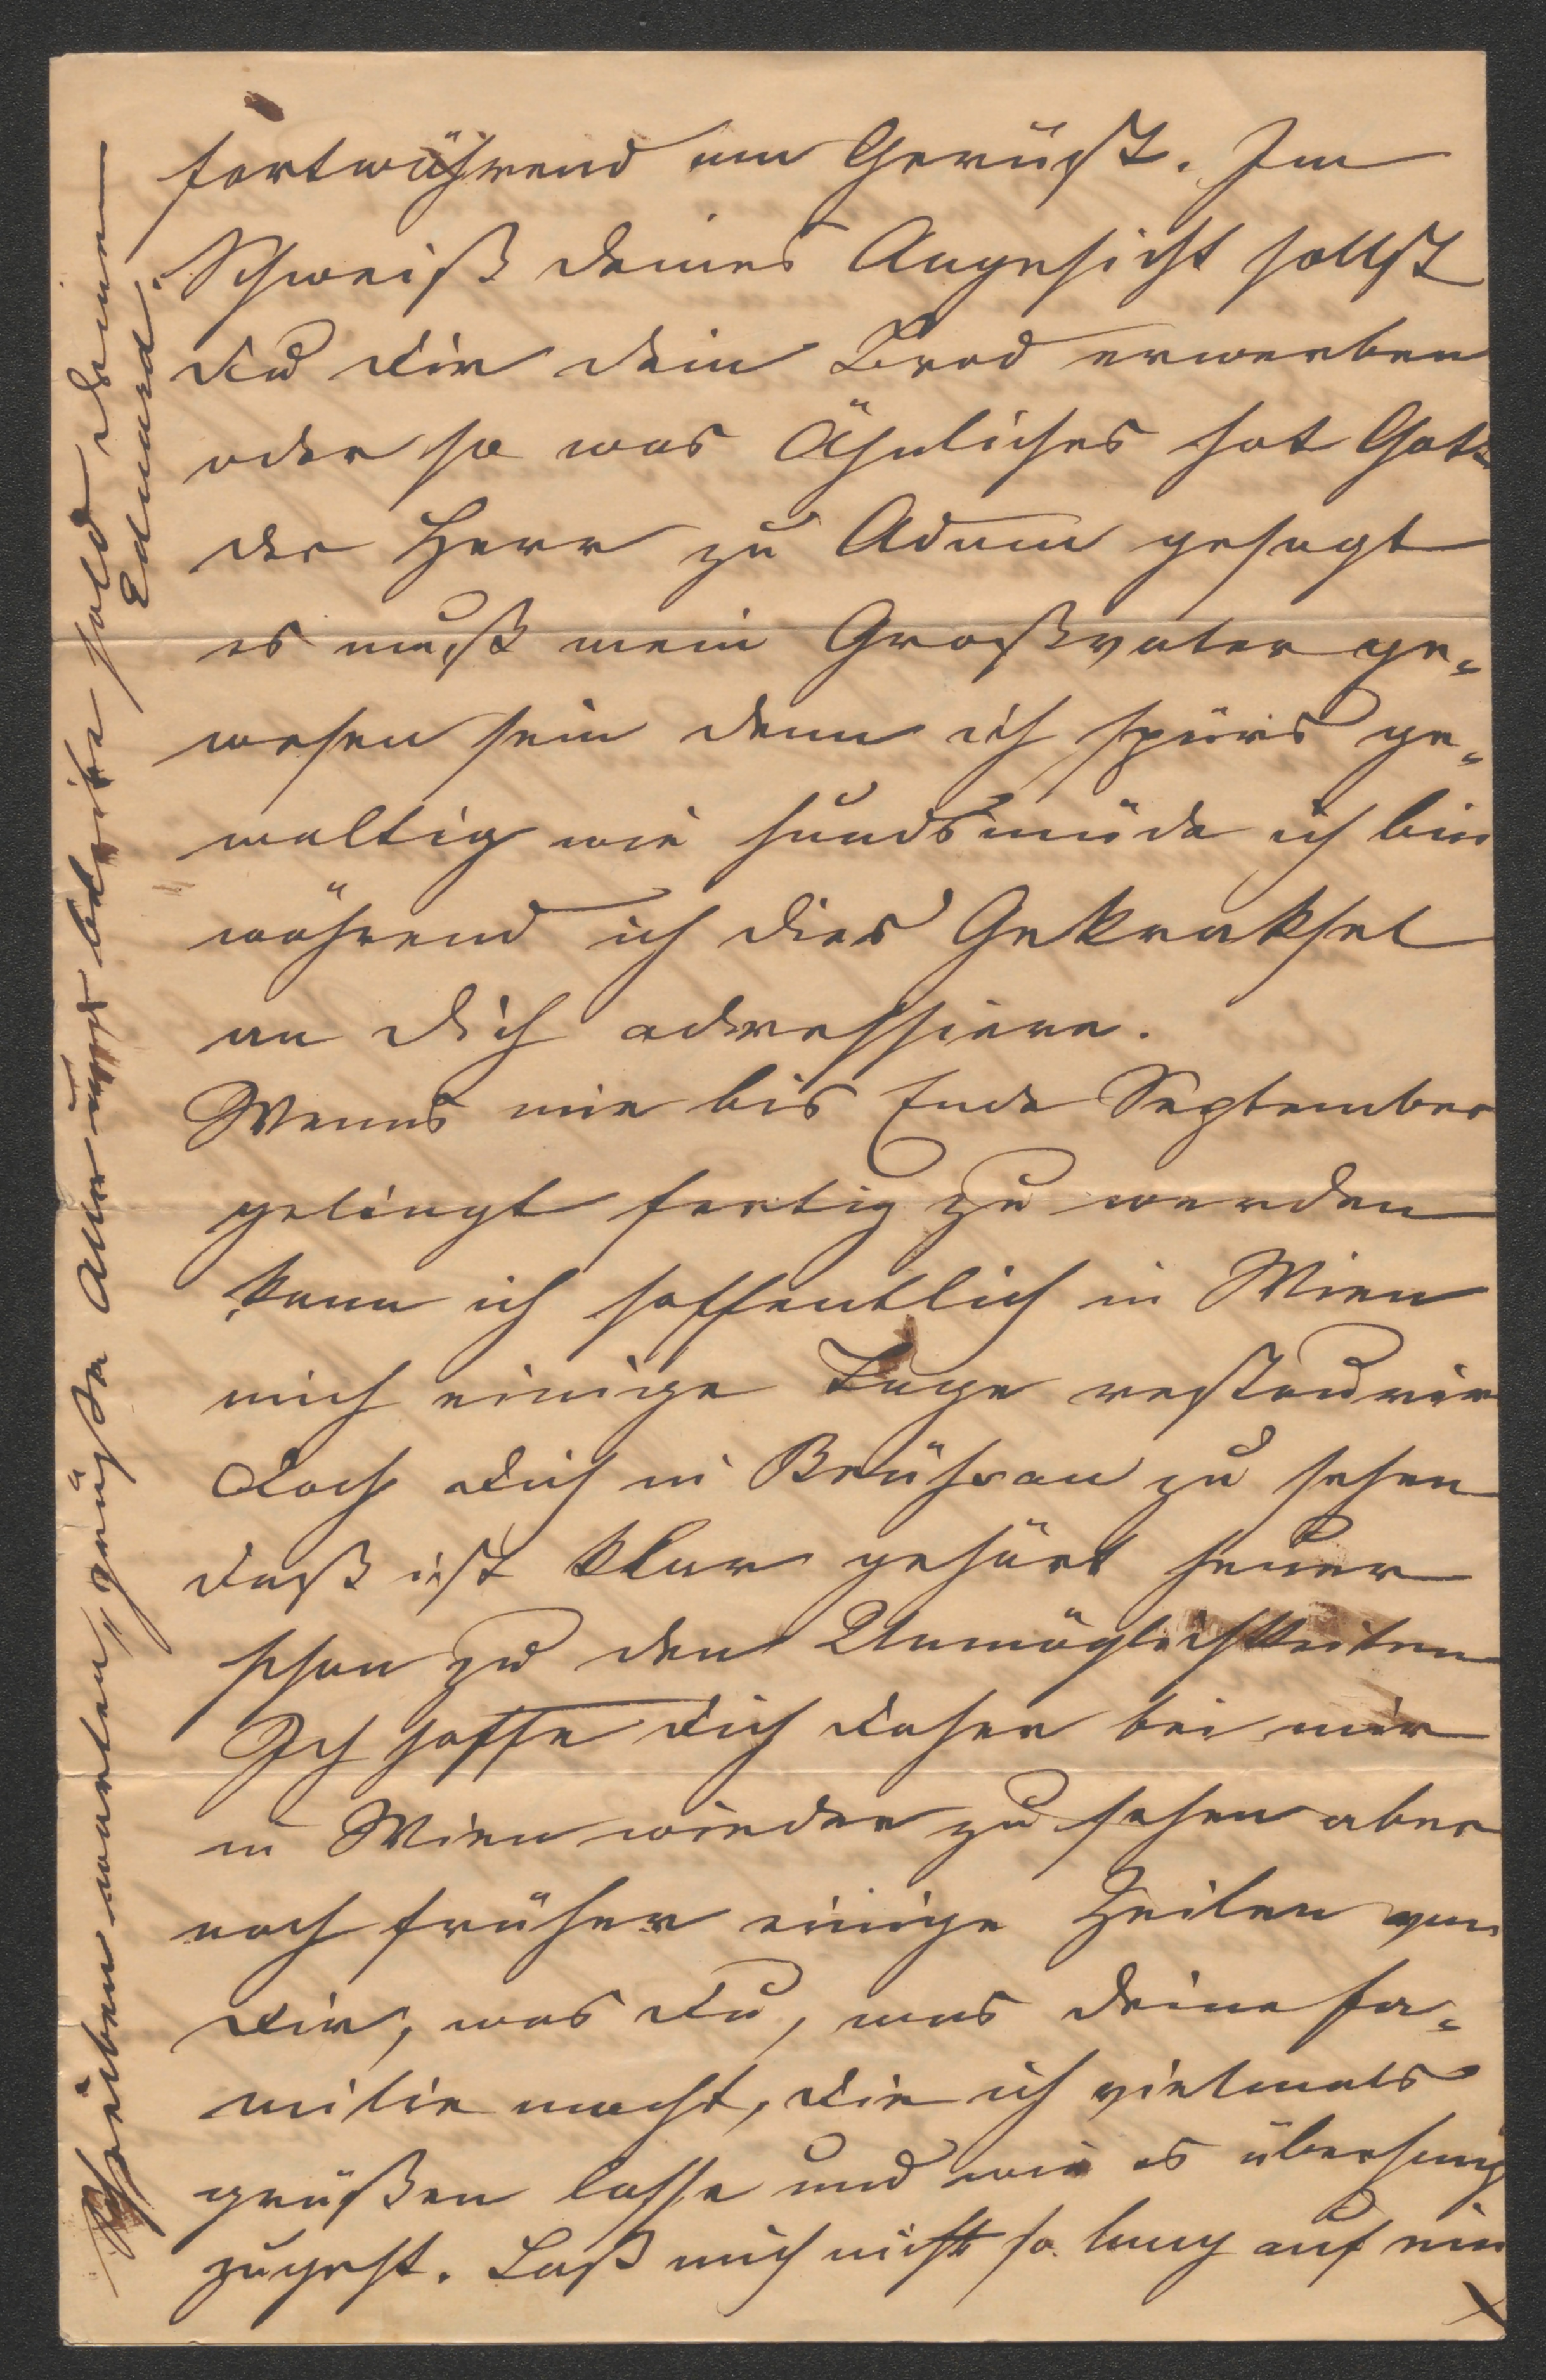 fortwährend am Gerüst. Im
Schweiß deines Angesicht sollst
du dir dein Brod erwerben
oder so was Ähnliches hat Gott
der Herr zu Adam gesagt
es muß mein Großvater ge=
wesen sein denn ich spürs ge=
waltig wie hundsmüde ich bin
während ich dies Gekraksel
an dich adressiere.
Wenns mir bis Ende September
gelingt fertig zu werden
kann ich hoffentlich in Wien
mich einige Tage restaurir
doch dich in Brühsau zu sehen
daß ist klar gehört heuer
schon zu den Unmöglichkeiten
Ich hoffe dich daher bei mir
in Wien wieder zu sehen aber
noch früher einige Zeilen von
dir, was du, was deine Fa=
milie macht, die ich vielmals
grüßen lasse und wie es überhaupt
zugeht. Laß mich nicht so lang auf ein
Schreiben warten, grüße Alle und bleibe hold deinem
Eduard.